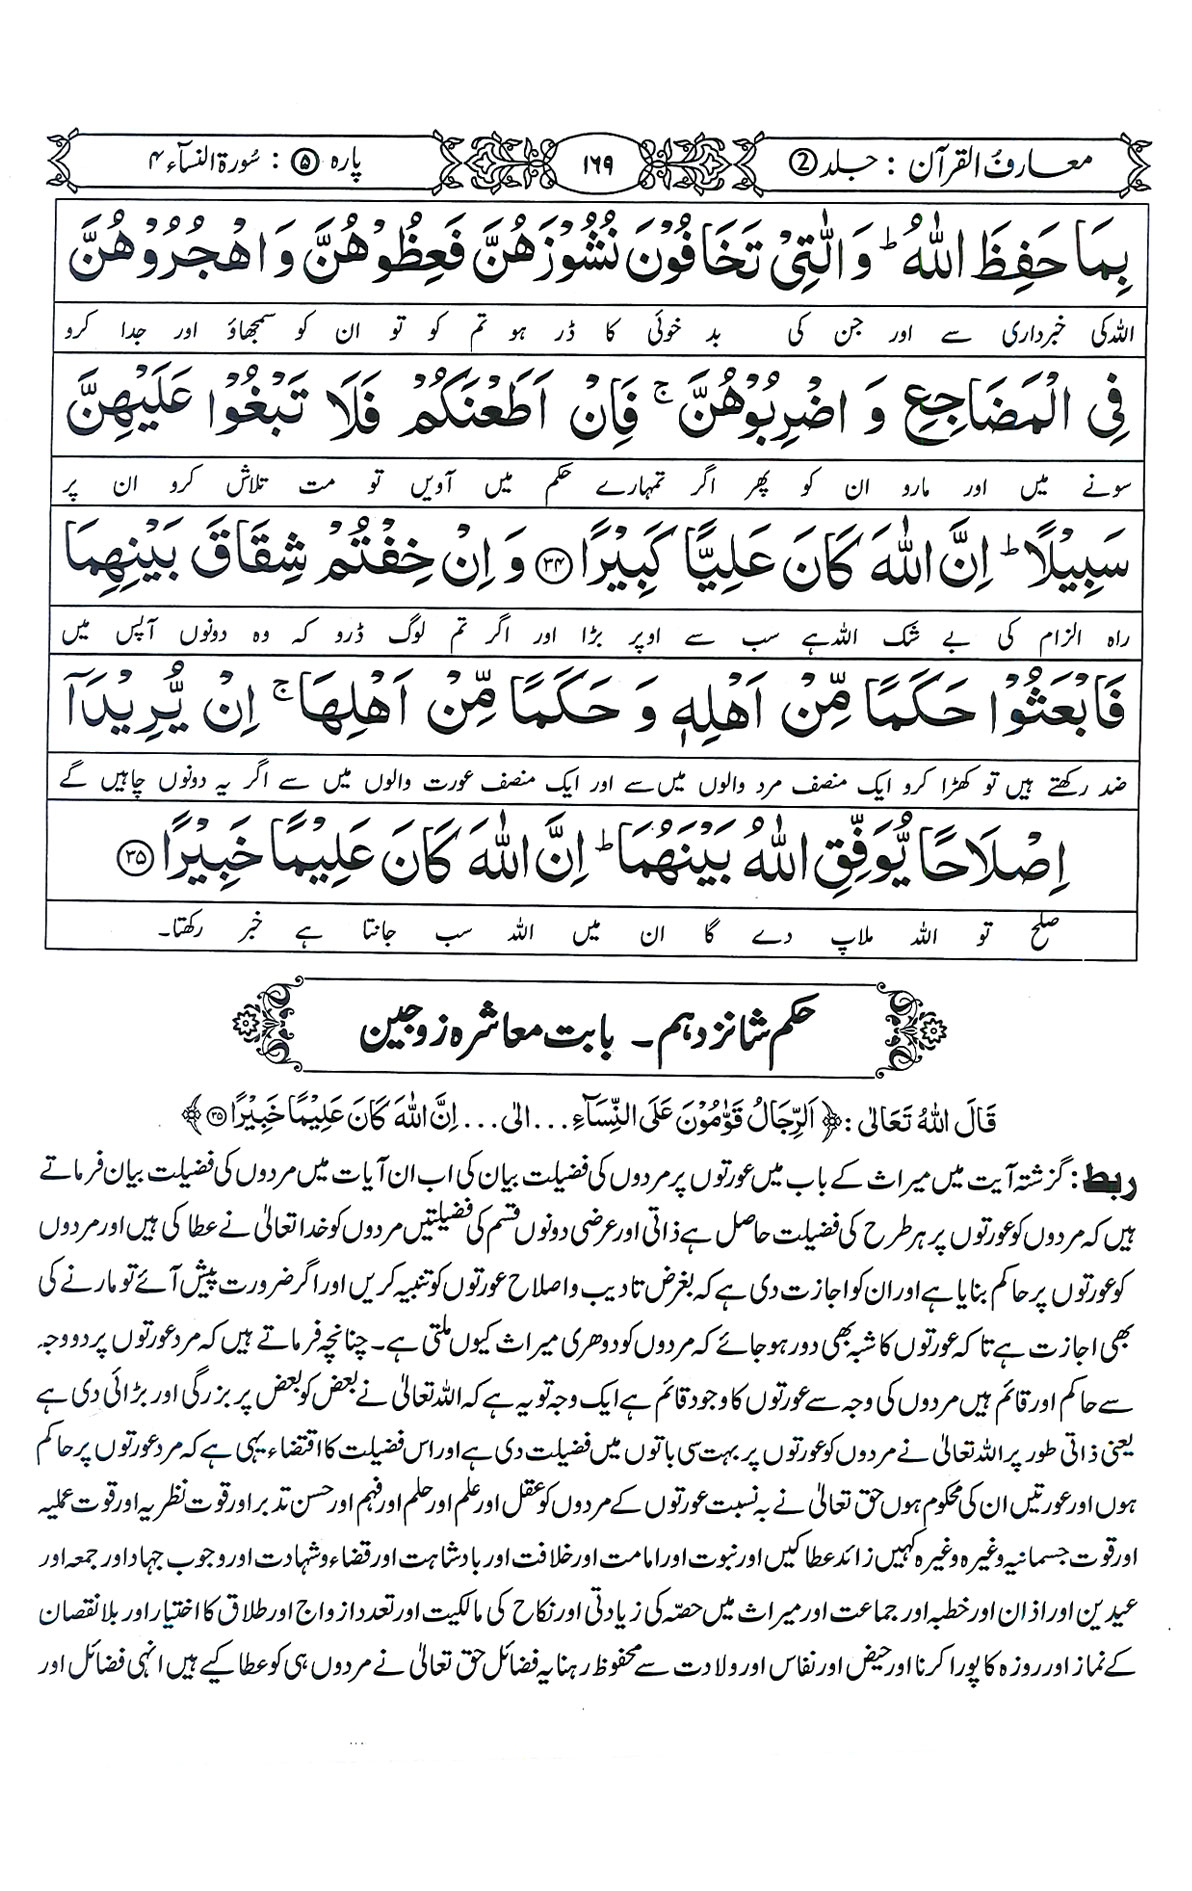 معارف القرآن : جلد 2
۱۶۹
پارہ ۵ : سُورۃ النسآء ۴
بِمَا حَفِظَ اللّٰهُ ؕ وَ الّٰتِیْ تَخَافُوْنَ نُشُوْزَهُنَّ فَعِظُوْهُنَّ وَ اهْجُرُوْهُنَّ
اللہ کی خبرداری سے اور جن کی بد خوئی کا ڈر ہو تم کو تو ان کو سمجھاؤ اور جدا کرو
فِی الْمَضَاجِعِ وَ اضْرِبُوْهُنَّ ۚ فَاِنْ اَطَعْنَكُمْ فَلَا تَبْغُوْا عَلَیْهِنَّ
سونے میں اور مارو ان کو پھر اگر تمہارے حکم میں آویں تو مت تلاش کرو ان پر
سَبِیْلًا ؕ اِنَّ اللّٰهَ كَانَ عَلِیًّا كَبِیْرًا ﴿۳۴﴾ وَ اِنْ خِفْتُمْ شِقَاقَ بَیْنِهِمَا
راہ الزام کی بے شک اللہ ہے سب سے اوپر بڑا اور اگر تم لوگ ڈرو کہ وہ دونوں آپس میں
فَابْعَثُوْا حَكَمًا مِّنْ اَهْلِهٖ وَ حَكَمًا مِّنْ اَهْلِهَا ۚ اِنْ یُّرِیْدَاۤ
ضد رکھتے ہیں تو کھڑا کرو ایک منصف مرد والوں میں سے اور ایک منصف عورت والوں میں سے اگر یہ دونوں چاہیں گے
اِصْلَاحًا یُّوَفِّقِ اللّٰهُ بَیْنَهُمَا ؕ اِنَّ اللّٰهَ كَانَ عَلِیْمًا خَبِیْرًا ﴿۳۵﴾
صلح تو اللہ ملاپ دے گا ان میں اللہ سب جانتا ہے خبر رکھتا۔
حکم شانزدہم ۔ بابت معاشرہ زوجین
قَالَ اللّٰهُ تَعَالٰی : ﴿اَلرِّجَالُ قَوّٰمُوْنَ عَلَی النِّسَآءِ ... الٰی ... اِنَّ اللّٰهَ كَانَ عَلِیْمًا خَبِیْرًا ۳۵﴾
ربط : گزشتہ آیت میں میراث کے باب میں عورتوں پر مردوں کی فضیلت بیان کی اب ان آیات میں مردوں کی فضیلت بیان فرماتے
ہیں کہ مردوں کو عورتوں پر ہر طرح کی فضیلت حاصل ہے ذاتی اور عرضی دونوں قسم کی فضیلتیں مردوں کو خدا تعالیٰ نے عطا کی ہیں اور مردوں
کو عورتوں پر حاکم بنایا ہے اور ان کو اجازت دی ہے کہ بغرض تادیب و اصلاح عورتوں کو تنبیہ کریں اور اگر ضرورت پیش آئے تو مارنے کی
بھی اجازت ہے تا کہ عورتوں کا شبہ بھی دور ہو جائے کہ مردوں کو دوھری میراث کیوں ملتی ہے۔ چنانچہ فرماتے ہیں کہ مرد عورتوں پر دو وجہ
سے حاکم اور قائم ہیں مردوں کی وجہ سے عورتوں کا وجود قائم ہے ایک وجہ تو یہ ہے کہ اللہ تعالیٰ نے بعض کو بعض پر بزرگی اور بڑائی دی ہے
یعنی ذاتی طور پر اللہ تعالیٰ نے مردوں کو عورتوں پر بہت سی باتوں میں فضیلت دی ہے اور اس فضیلت کا اقتضاء یہی ہے کہ مرد عورتوں پر حاکم
ہوں اور عورتیں ان کی محکوم ہوں حق تعالیٰ نے بہ نسبت عورتوں کے مردوں کو عقل اور علم اور حلم اور فہم اور حسن تدبر اور قوت نظریہ اور قوت عملیہ
اور قوت جسمانیہ وغیرہ وغیرہ کہیں زائد عطا کیں اور نبوت اور امامت اور خلافت اور بادشاہت اور قضاء و شہادت اور وجوب جہاد اور جمعہ اور
عیدین اور اذان اور خطبہ اور جماعت اور میراث میں حصّہ کی زیادتی اور نکاح کی مالکیت اور تعدد ازواج اور طلاق کا اختیار اور بلا نقصان
کے نماز اور روزہ کا پورا کرنا اور حیض اور نفاس اور ولادت سے محفوظ رہنا یہ فضائل حق تعالیٰ نے مردوں ہی کو عطا کیے ہیں انہی فضائل اور